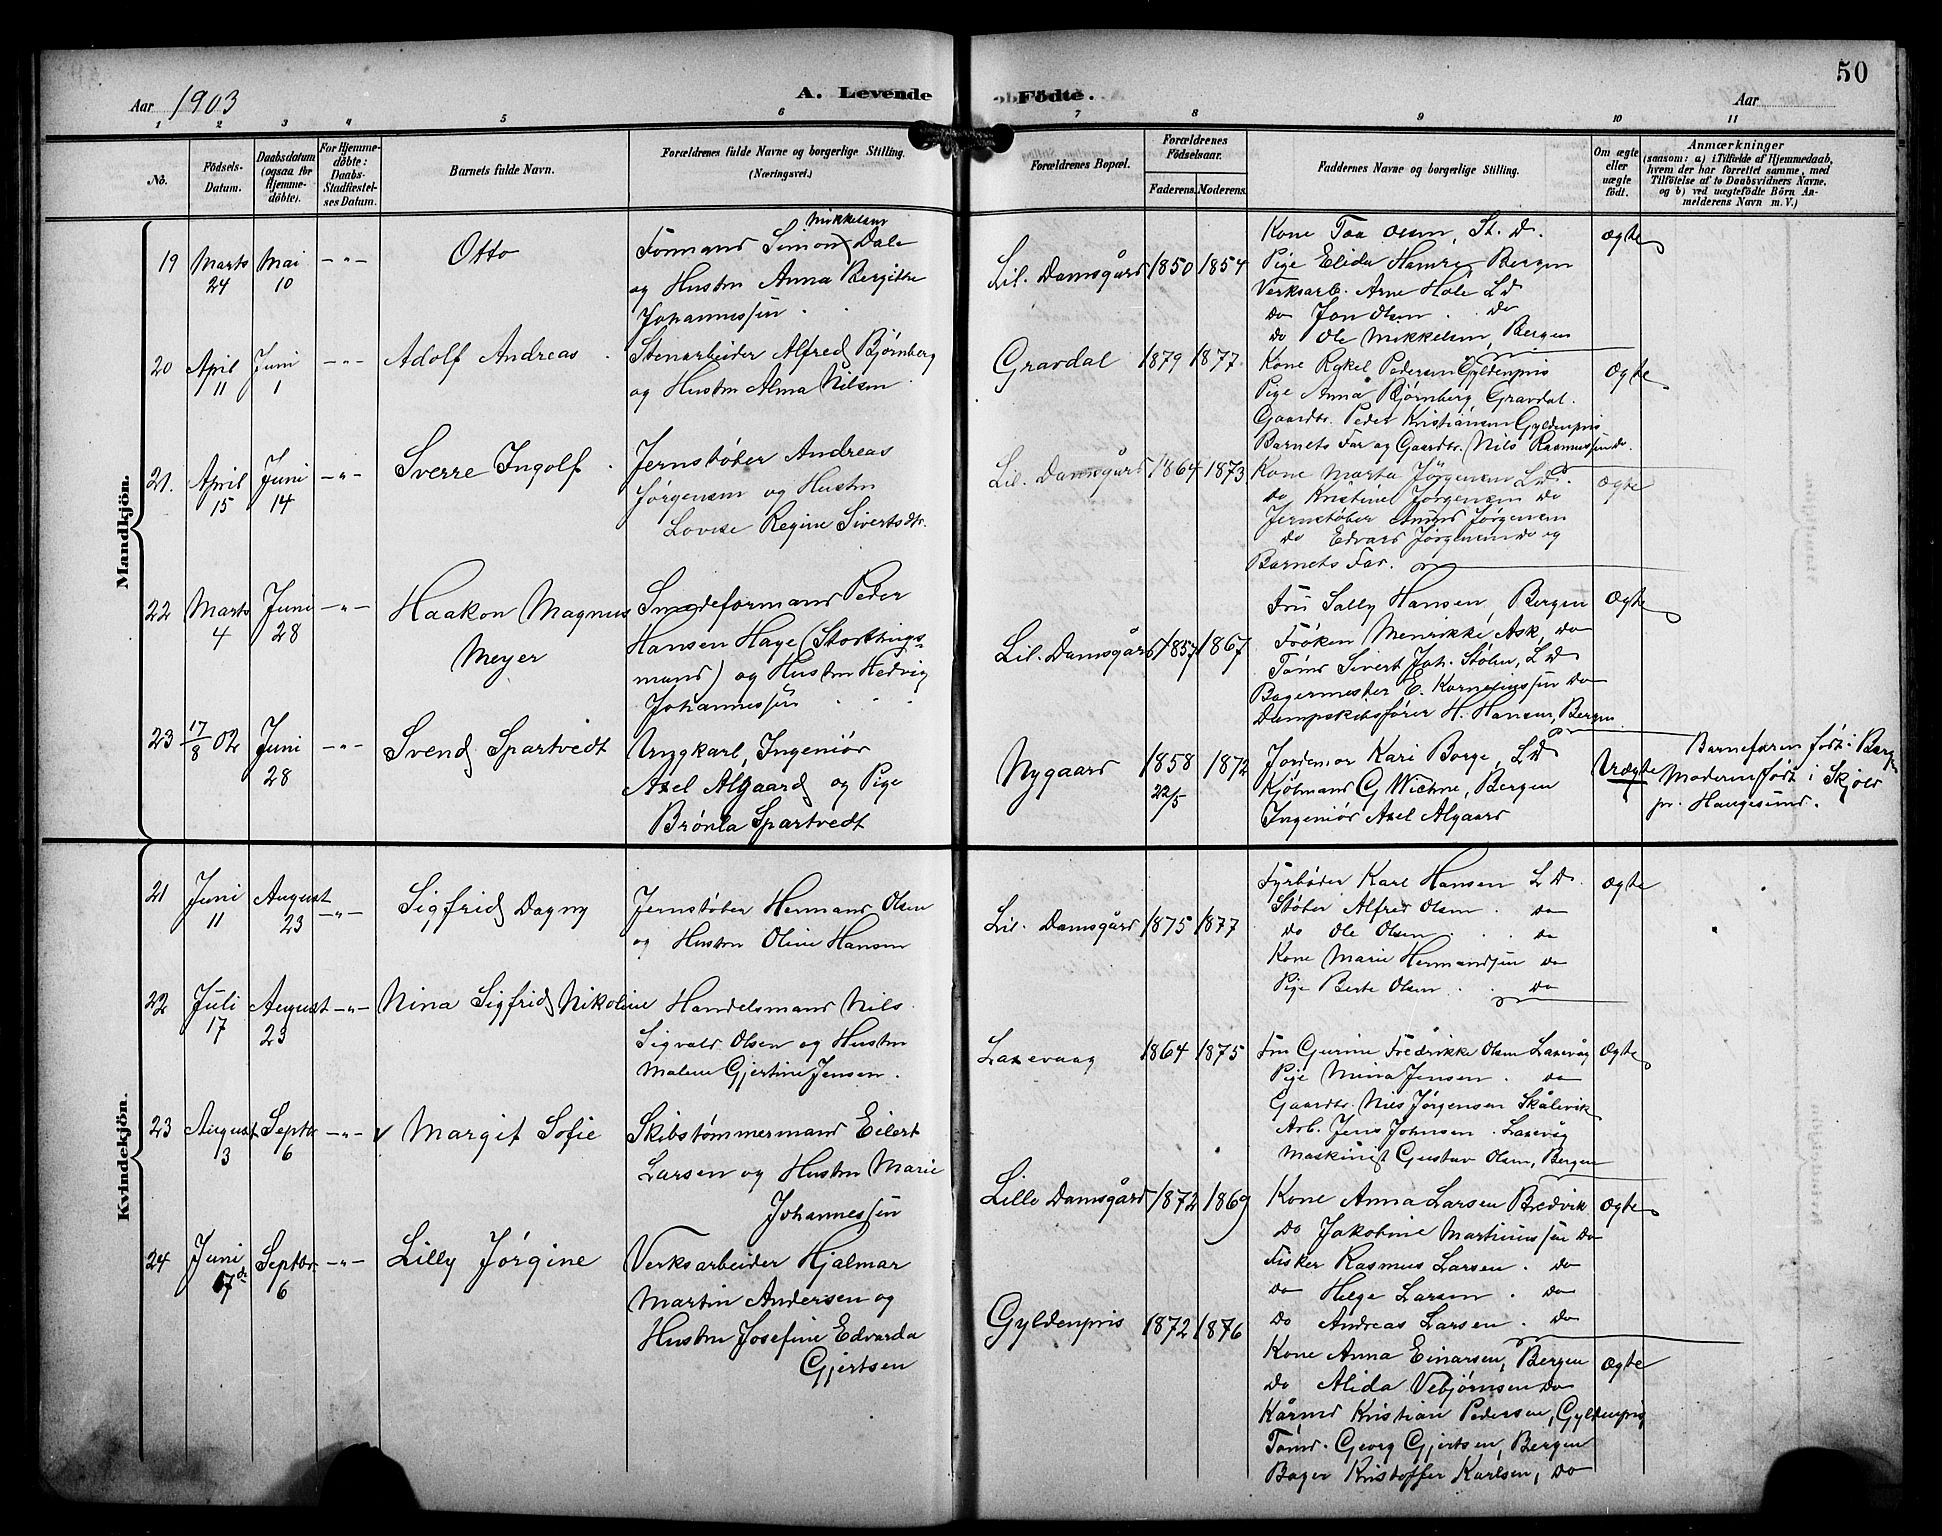 50
Aar 1903
A. Levende Födte.
Aar
1 2 3 4 5 6 7 8 9 10 11
No.
Födsels-Datum.
Daabsdatum (ogsaa for Hjemmedöbte).
For Hjemmedöbte: Daabs-Stadfæstelses Datum.
Barnets fulde Navn.
Forældrenes fulde Navne og borgerlige Stilling. (Næringsvei.)
Forældrenes Bopæl.
Forældrenes Födselsaar.
Faderens. Moderens.
Faddernes Navne og borgerlige Stilling.
Om ægte eller uægte födt.
Anmærkninger
(saasom: a) i Tilfælde af Hjemmedaab,
hvem der har forrettet samme, med
Tilföielse af to Daabsvidners Navne,
og b) ved uægtefödte Börn An-
melderens Navn m. V.)
Mandkjön.
19 Marts 24 Mai 10 -"- Otto
Mikkelsen
Formand Simon Dale
og Hustru Anna Bergitte
Johannessen
Lil. Damsgård 1850 1854
Kone Olsen, St. D.
Pige Elida Hamre, Bergen
Verksarb. Arne Hole L D
do Jon Olsen do
do Ole Mikkelsen, Bergen
Ægte
20 April 11 Juni 1 -"- Adolf Andreas
Stenarbeider Alfred Bjørnberg
og Hustru Alma Nilsen
Gravdal 1879 1877
Kone Rakel Pedersen Gyldenpris
Pige Anna Bjørnberg Gravdal.
Gaardbr. Peder Kristiansen Gyldenpris
Barnets Far og Gaardbr. Nils Rasmussen do
Ægte
21. April 15 Juni 14 -"- Sverre Ingolf
Jernstøber Andreas
Jørgensen og Hustru
Lovise Regine Sivertsdtr.
Lil. Damsgård 1864 1873
Kone Marta Jørgensen L D.
do Kristine Jørgensen do
Jernstøber Jørgensen
do Edvard Jørgensen do og
Barnets Far.
Ægte
22 Marts 4 Juni 28 -"- Haakon Magnus
Meyer
Smedeformand Peder
Hansen Hage (Storthings-
mand) og Hustru Hedvig
Johannessen
Lil. Damsgård 1857 1867
Fru Sally Hansen, Bergen
Frøken Henrikke Ask, do
Tømd Sivert Joh. Stølen, L D
Bagermester E. Korneliussen do
Dampskibsfører H. Hansen, Bergen
Ægte
23 17/8 02 Juni 28 -"- Svend Spartvedt
Ungkarl, Ingeniør
Axel Algaard og Pige
Brønla Spartvedt
Nygaard 1858 22/5 1872
Jordemor Kari Borge, L D
Kjøbmand G Wichne, Bergen
Ingeniør Axel Algaard
Uægte
Barnefaren født i Bergen
Moderen født i Skjold
pr. Haugesund.
Kvindekjön.
21 Juni 11 August 23 -"- Sigfrid Dagny
Jernstøber Hermand Olsen
og Hustru Oline Hansen
Lil. Damsgård 1875 1877
Fyrbøder Karl Hansen L D.
Støber Alfred Olsen do
do Ole Olsen do
Kone Marie Hermandsen do
Pige Berte Olsen do
Ægte
22 Juli 17 August 23 -"- Nina Sigfrid Nikoline
Handelsmand Nils
Sigvald Olsen og Hustru
Malene Gjertine Jensen.
Laxevaag 1864 1875
Fru Gurine Fredrikke Olsen Laxevåg
Pige Mina Jensen do
Gaardbr. Nils Jørgensen Skålevik
Arb. Jens Johnsen Laxevåg
Maskinist Gustav Olsen, Bergen
Ægte
23 August 3 Septbr 6 -"- v Margit Sofie
Skibstømmermand Eilert
Larsen og Hustru Marie
Johannessen
Lille Damsgård 1872 1869
Kone Anna Larsen Bredvik
do Jakobine Martinussen do
Fisker Rasmus Larsen do
do Helge Larsen do
do Andreas Larsen do
Ægte
24 Juni 17de Septbr 6 -"- Lilly Jørgine
Verksarbeider Hjalmar
Martin Andersen og
Hustru Josefine Edvarda
Gjertsen
Gyldenpris 1872 1876
Kone Anna Einarsen, Bergen
do Alida Vebjørnsen do
Kristian Pedersen, Gyldenpris
Tømd. Georg Gjertsen, Bergen
Bager Kristoffer Karlsen, do
Ægte